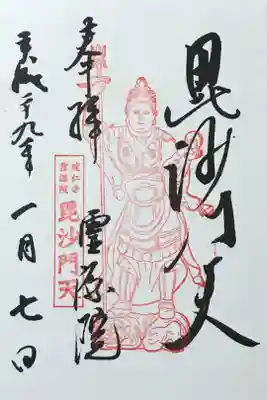 毘沙門天
奉拝
霊源院
建仁寺
霊源院
毘沙門天
平成二十九年
一月七日